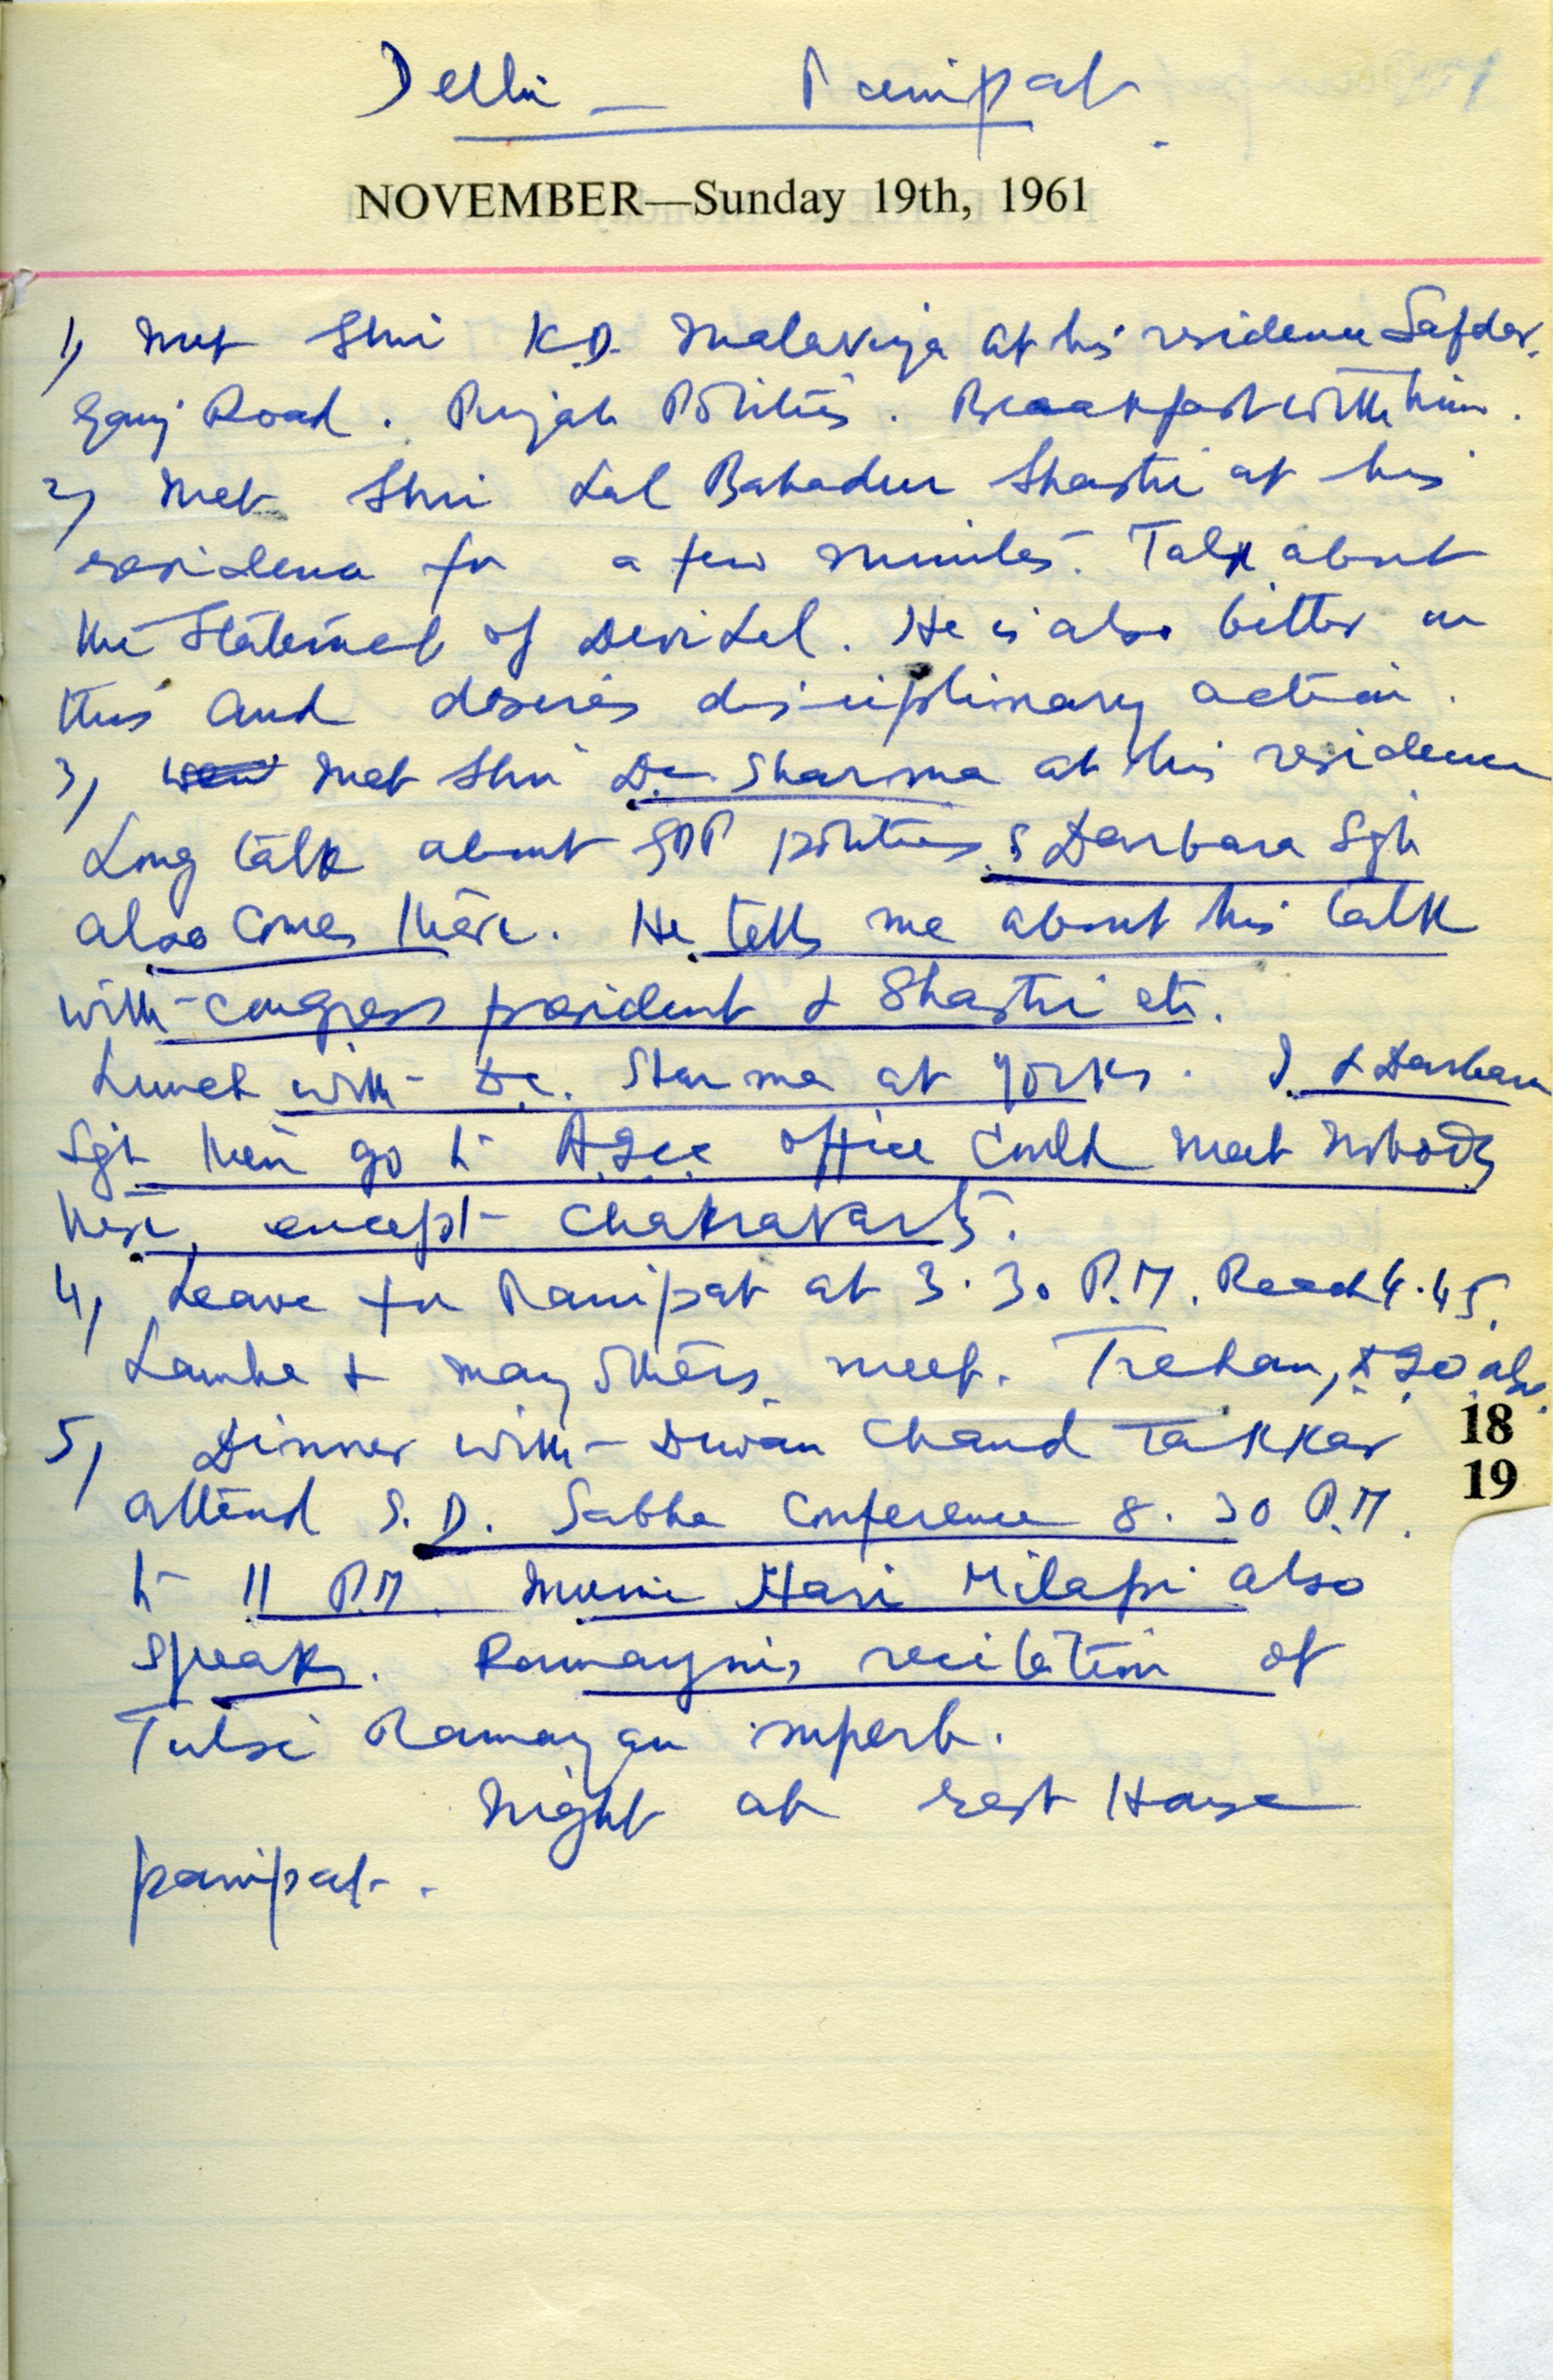 Delhi — Panipat
NOVEMBER—Sunday 19th, 1961
1) Met Shri K.D. Malaviya at his residence Safdar
Ganj Road. Punjab Politics. Breakfast with him.
2) Met Shri Lal Bahadur Shastri at his
residence for a few minutes. Talk about
the Statement of Devi Lal. He is also bitter on
this and desires disciplinary action.
3) Met Shri Sharma at his residence
Long talk about politics Darbara Sgh
also comes there. He tells me about his talk
with congress president & Shastri etc.
Lunch with Sharma at Yorks. I & Darbara
Sgh then go to AICC office could meet nobody
here, except Chakravarty.
4) Leave for Panipat at 3.30 P.M. Reach 4.45.
Lamba & many others meet. Trehan, also.
5) Dinner with Diwan Chand Takkar
attend S.D. Sabha Conference 8.30 P.M.
to 11 P.M. Muni Hari Milapi also
speaks. recitation of
Tulsi Ramayan superb.
Night at rest House
panipat.
18
19